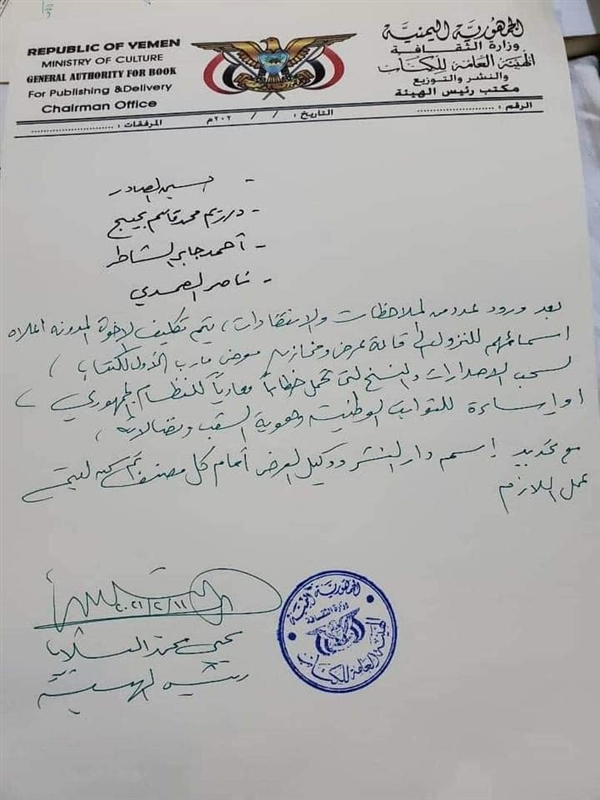 الجمهورية اليمنية
وزارة الثقافة
الهيئة العامة للكتاب
والنشر والتوزيع
مكتب رئيس الهيئة
REPUBLIC OF YEMEN
MINISTRY OF CULTURE
GENERAL AUTHORITY FOR BOOK
For Publishing &Delivery
Chairman Office
الرقم : ........................ التاريخ : / / ٢٠٢م المرفقات : ........................
- الحسين الصادر
- د/ريم محمد قاسم بحيبح
- أحمد جابر الشاطر
- ناصر الصمدي
بعد ورود عدد من الملاحظات والانتقادات، يتم تكليف الاخوة المدونه اعلاه
اسمائهم للنزول الى قاعة عرض ومخازن معرض مارب الأول للكتاب،
لسحب الاصدارات والنسخ التي تحمل خطاباً معادياً للنظام الجمهوري،
او إساءة للثوابت الوطنية وهوية الشعب ونضالاته،
مع تحديد إسم دار النشر ووكيل العرض أمام كل مصنف تم سحبه ليتم
عمل اللازم
٢٠٢١/٢/١١
يحيى محمد الثلايا
رئيس الهيئة
الجمهورية اليمنية
وزارة الثقافة
الهيئة العامة للكتاب